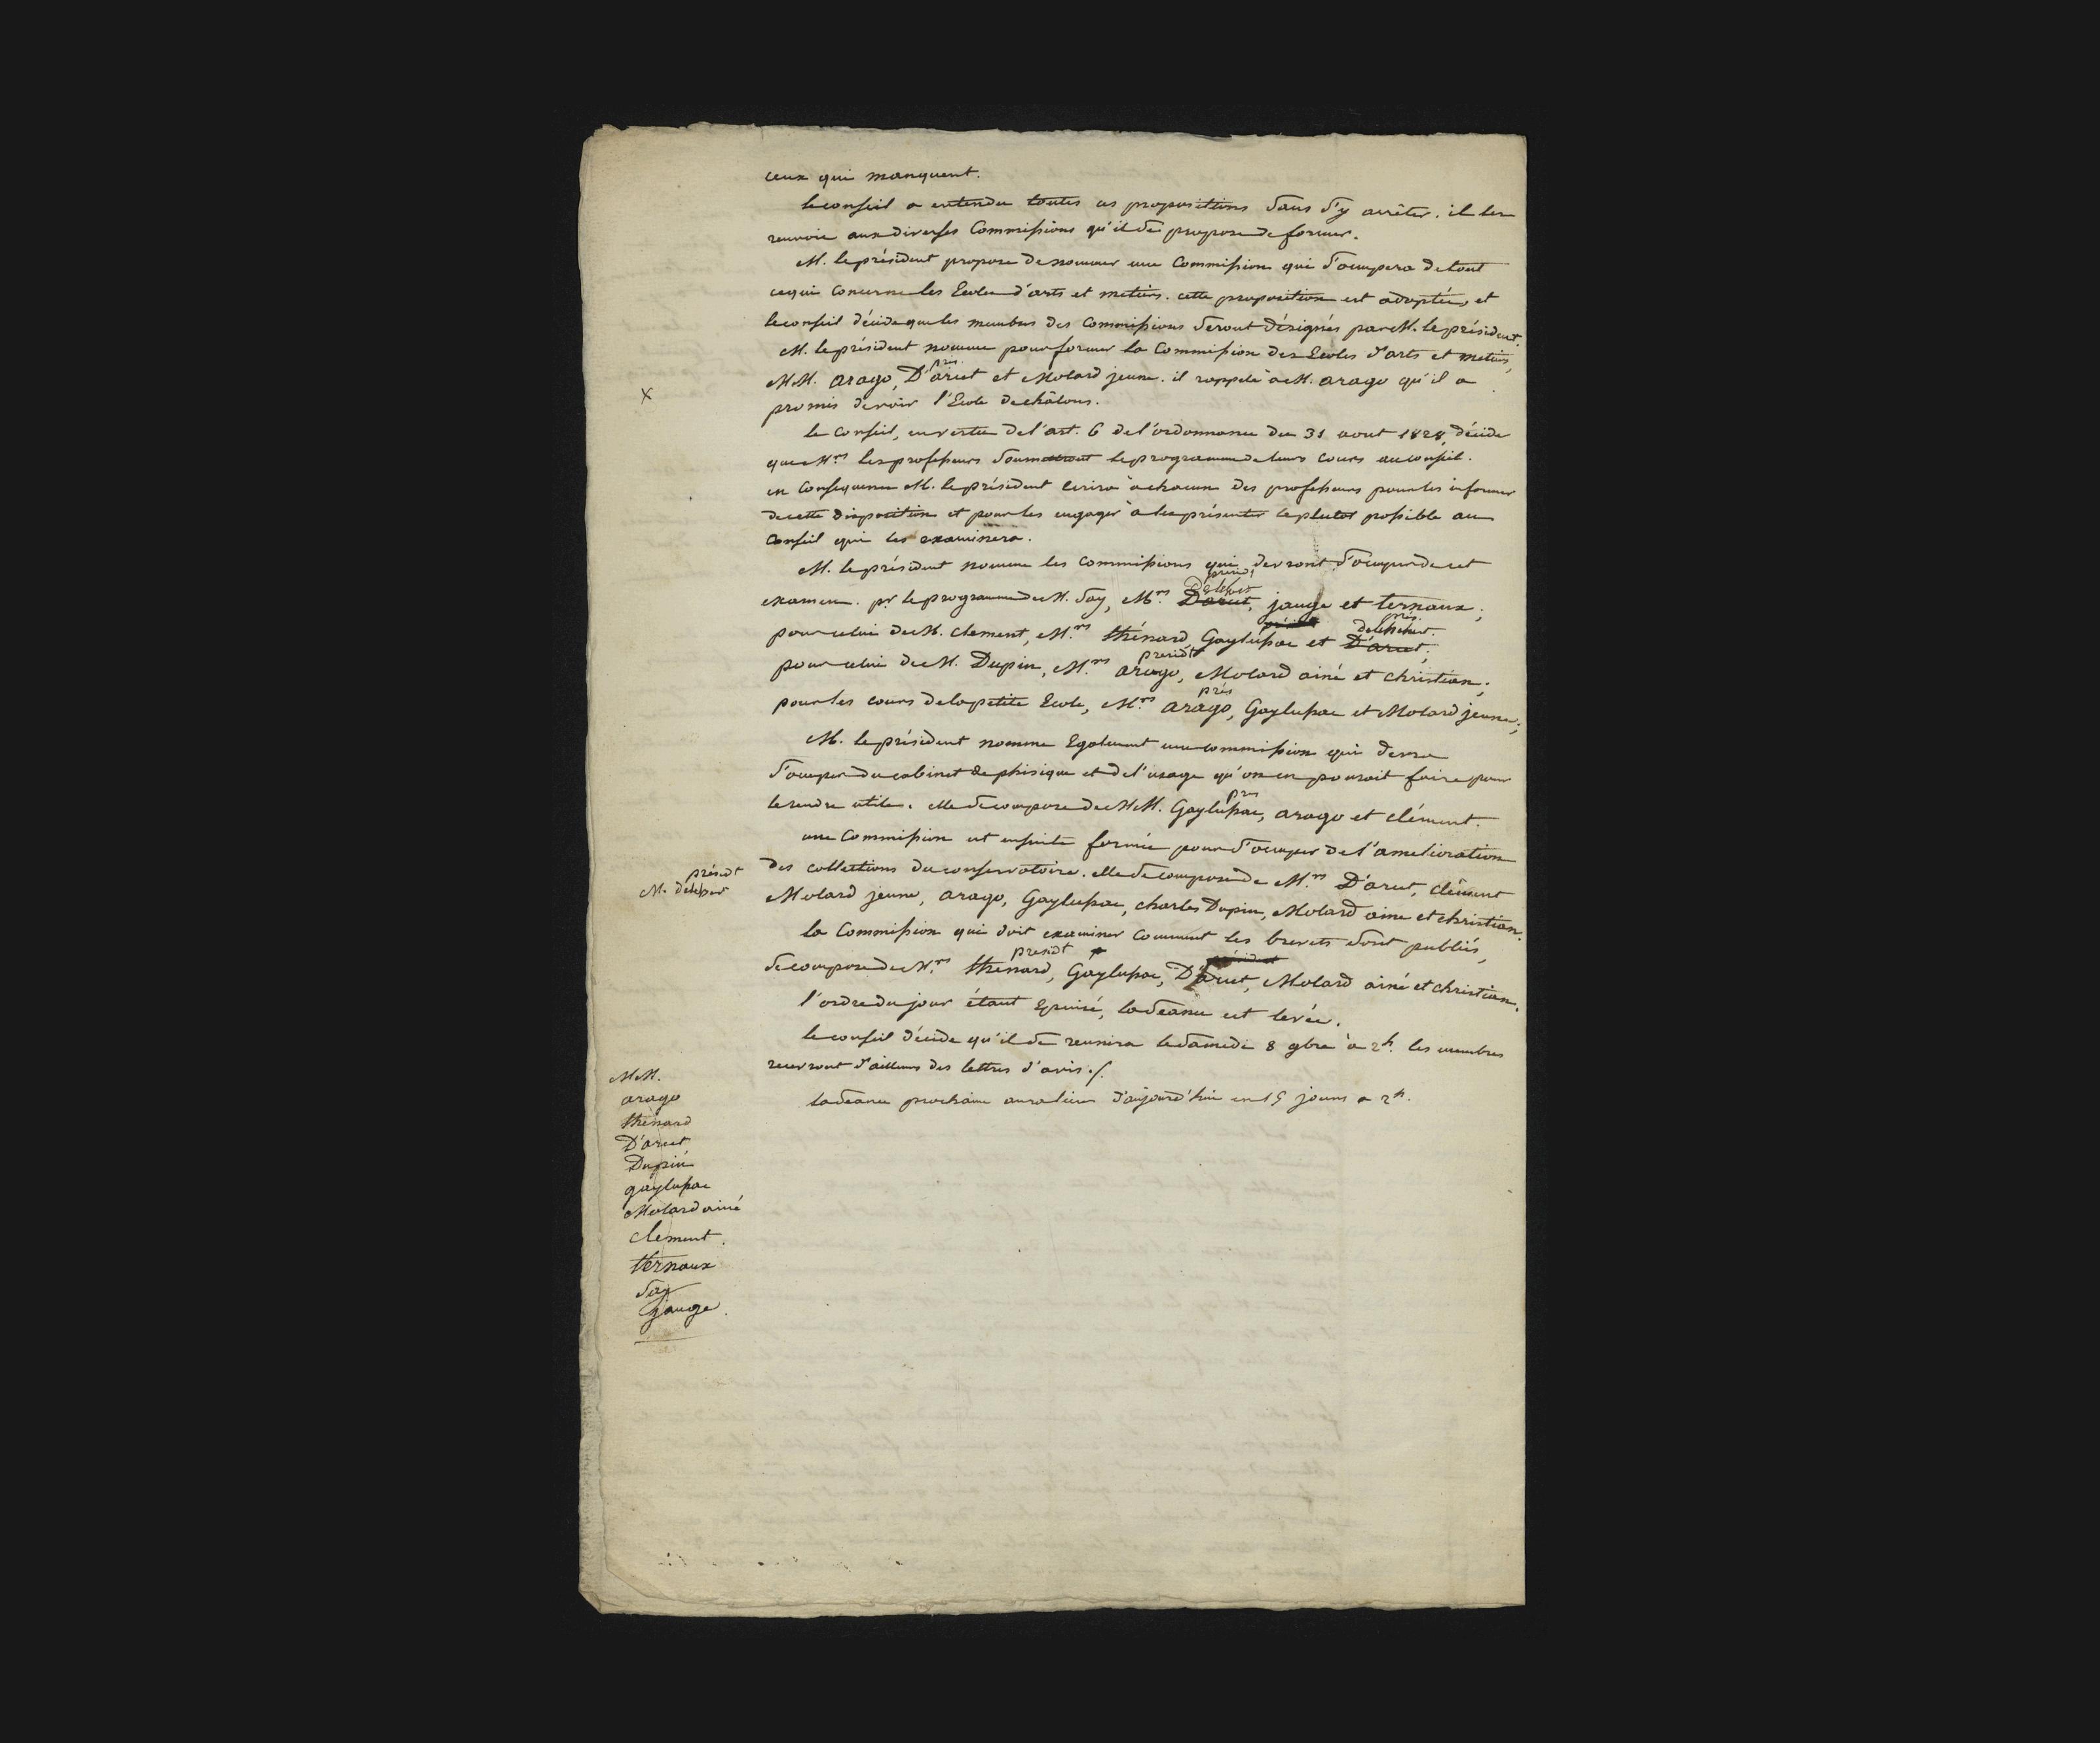 ceux qui manquent.
le conseil a entendu toutes ces propositions sans s'y arrêter. il les
renvoie aux diverses Commissions qu'il se propose de former.
M. le président propose de nommer une Commission qui s'occupera de tout
ce qui concerne les Ecoles d'arts et metiers. cette proposition est adoptée, et
le conseil décide que les membres des Commissions seront désignés par M. le président.
M. le président nomme pour former la Commission des Ecoles d'arts et metiers,
prés.
MM. arago, D'arcet et Molard jeune. il rappele à M. arago qu'il a
X
promis de voir l'Ecole de châlons.
le Conseil, en vertu de l'art. 6 de l'ordonnance du 31 aout 1828, décide
que Mrs les professeurs soumettront le programme de leurs cours au conseil.
en Consequence M. le président ecrira à chacun des professeurs pour les informer
de cette disposition et pour les engager à les présenter le plutot possible au
Conseil qui les examinera.
M. le président nomme les Commissions qui devront s'occuper de cet
présidt
Delessert
examen. pr le programme de M. Say, Mrs Darcet, jauge et ternaux;
prés.
delessert.
pour celui de M. clement, Mrs thénard, Gaylussac et D'arcet;
presidt
pour celui de M. Dupin, Mrs arago, Molard ainé et christian;
prés
pour les cours de la petite Ecole, Mrs arago, Gaylussac et Molard jeune;
M. le président nomme Egalement une commission qui devra
s'occuper du cabinet de phisique et de l'usage qu'on en pourait faire pour
prés
le rendre utile. elle se compose de MM. Gaylussac, arago et clément.
une Commission est ensuite formée pour s'occuper de l'amelioration
présidt
M. delessert
des collections du conservatoire. elle se compose de Mrs D'arcet, clément
Molard jeune, arago, Gaylussac, charles Dupin, Molard ainé et christian.
la Commission qui doit examiner Comment les brevets sont publiés,
presidt
président
se compose de Mrs thenard, Gaylussac, D'arcet, Molard ainé et christian.
l'ordre du jour étant Epuisé, la séance est levée.
le conseil décide qu'il se reunira le samedi 8 9bre à 2h. les membres
recevront d'ailleurs des lettres d'avis./.
la séance prochaine aura lieu d'aujourd'hui en 15 jours a 2h.
MM.
arago
thénard
D'arcet
Dupin
gaylussac
Molard ainé
clement.
ternaux
Say
Jauge.